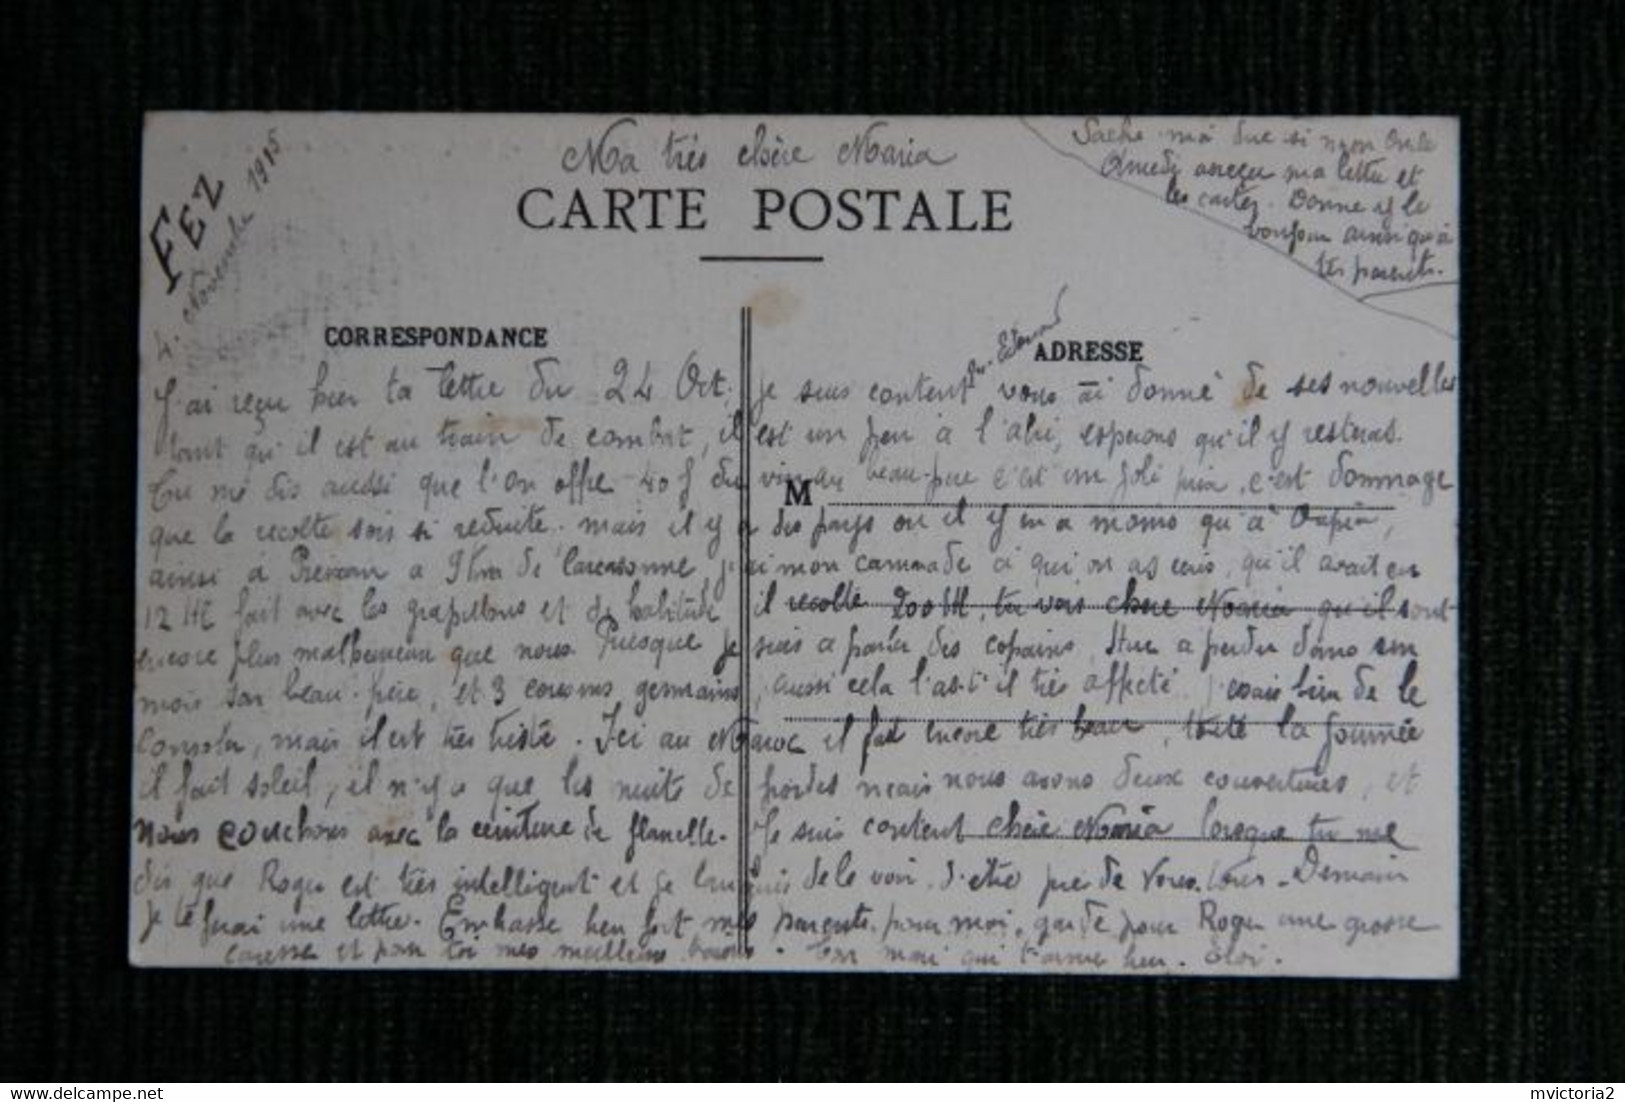 Fez
4. Novembre 1915
Ma très chère Maria
Sache moi dire si mon Oncle
Amedé a reçu ma lettre et
les cartes. Donne y le
bonjour ainsi qu'à
tes parents.
CARTE POSTALE
CORRESPONDANCE
ADRESSE
M
J'ai reçu bien ta lettre du 24 Oct, Je suis content vous ai donné de ses nouvelles
tant qu'il est au train de combat, il est un peu à l'abri, esperons qu'il y resteras.
Tu me dis aussi que l'on offre 40 f du vin au beau-père c'est un joli prix, c'est dommage
que la recolte sois si reduite, mais il y a des pays ou il y en a moins qu'à
ainsi à a 9 Km de Carcassonne, j'ai mon cammade a qui on as qu'il avait en
12 Hl fait avec les grapillons et d'habitude il recolte 200 Hl, tu vois chère Maria qu'il sont
encore plus malheureux que nous. Presque je suis a parler des copains, a perdu dans un
mois son beau-père, et 3 cousins germains, aussi cela l'as-t'il très affecté. J'essais bien de le
Consoler, mais il est très triste. Ici au Maroc il fait encore très beau, toute la journée
il fait soleil, il n'y a que les nuits de froides mais nous avons deux couvertures, et
nous couchons avec la ceinture de flanelle. Je suis content chère Maria lorsque tu me
dis que Roger est très intelligent et je languis de le voir, d'être près de vous tous. Demain
je te ferai une lettre. Embrasse bien fort mes parents pour moi, garde pour Roger une grosse
caresse et pour toi mes meilleurs baisers. Ton mari qui t'aime bien. Eloi.
mvictoria2